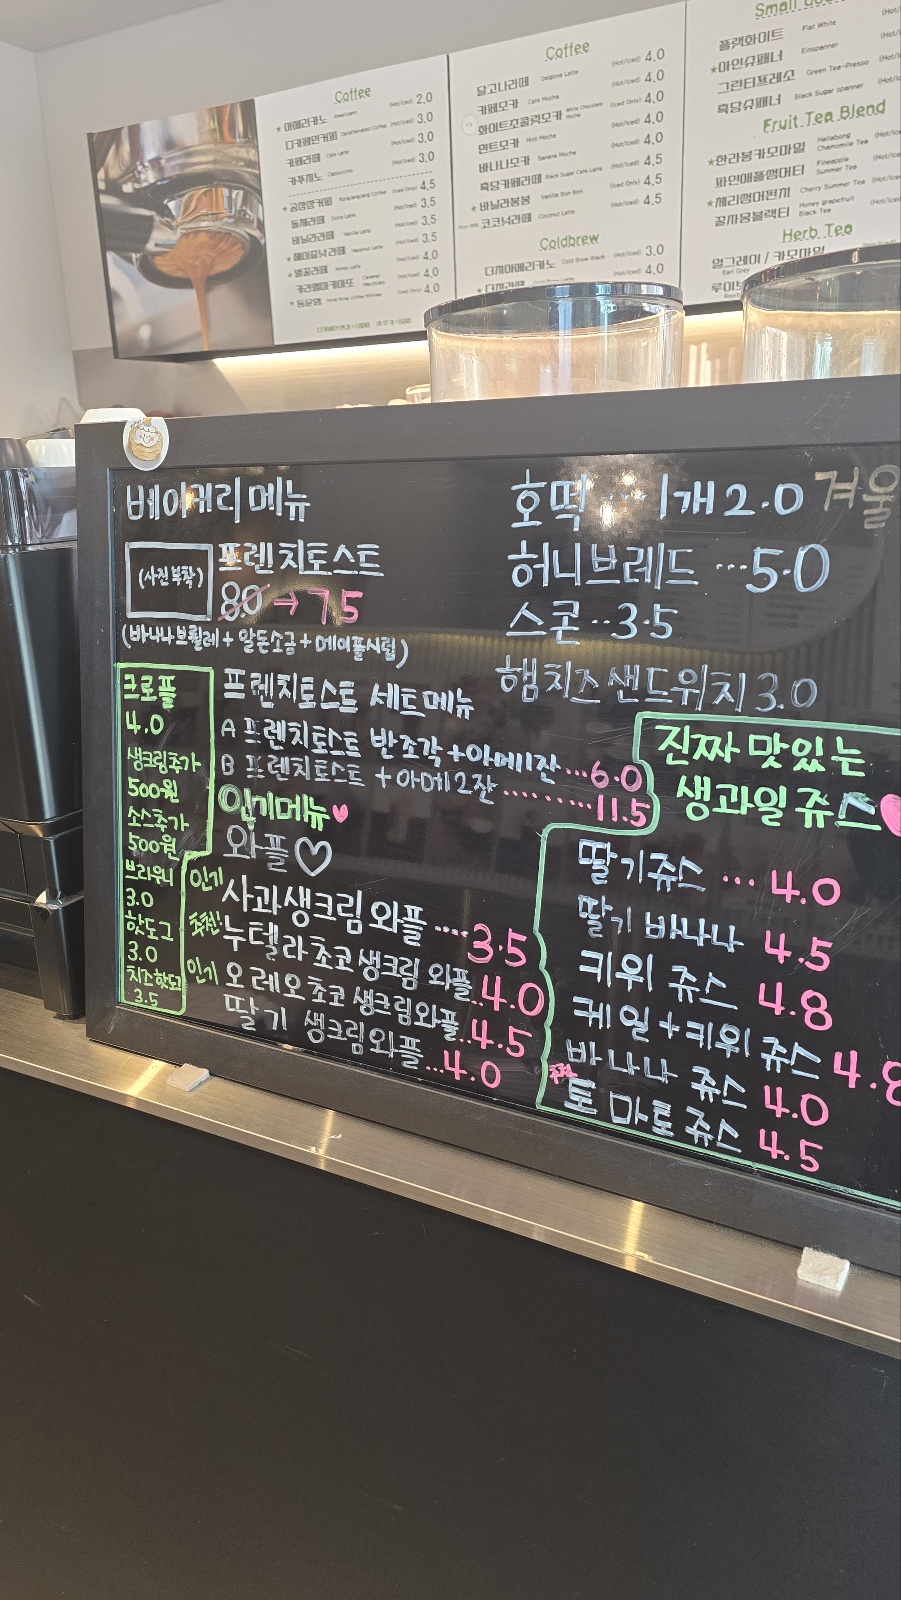 Coffee
★ 아메리카노 Americano (Hot/Iced) 2.0
디카페인커피 Decaffeinated Coffee (Hot/Iced) 3.0
카페라떼 Cafe Latte (Hot/Iced) 3.0
카푸치노 Cappuccino (Hot/Iced) 3.0
(Iced Only) 4.5
돌체라떼 Dolce Latte (Hot/Iced) 3.5
바닐라라떼 Vanilla Latte (Hot/Iced) 3.5
★ 헤이즐넛라떼 Hazelnut Latte (Hot/Iced) 3.5
★ 벌꿀라떼 Honey Latte (Hot/Iced) 4.0
카라멜마키아또 Caramel Macchiato (Hot/Iced) 4.0
(Iced Only) 4.0
Coffee
달고나라떼 Dalgona Latte (Hot/Iced) 4.0
카페모카 Cafe Mocha (Hot/Iced) 4.0
화이트초콜릿모카 White Chocolate Mocha (Iced Only) 4.0
민트모카 Mint Mocha (Hot/Iced) 4.0
바나나모카 Banana Mocha (Hot/Iced) 4.5
흑당카페라떼 Black Sugar Cafe Latte (Hot/Iced) 4.5
★ 바닐라봉봉 Vanilla Bon Bon (Iced Only) 4.5
코코넛라떼 Coconut Latte (Hot/Iced) 4.5
Coldbrew
더치아메리카노 Cold Brew Black (Hot/Iced) 3.0
(Hot/Iced) 4.0
Small
플랫화이트 Flat White
★아인슈패너 Einspanner
그린티프레소 Green Tea-Presso
흑당슈패너 Black Sugar spanner
Fruit Tea Blend
★한라봉카모마일 Hallabong Chamomile Tea
파인애플썸머티 Pineapple Summer Tea
★체리썸머펀치 Cherry Summer Tea
꿀자몽블랙티 Honey grapefruit Black Tea
Herb Tea
얼그레이 / 카모마일
Earl Grey
베이커리 메뉴
(사진 부착)
프렌치토스트
80 → 75
(바나나브륄레 + 말돈소금 + 메이플시럽)
프렌치토스트 세트메뉴
A 프렌치토스트 반조각 +아메1잔 ···6.0
B 프렌치토스트 +아메2잔 ·········11.5
인기메뉴♥
와플♡
인기 사과생크림 와플 ····3.5
추천! 누텔라 초코 생크림 와플..4.0
인기 오레오 초코 생크림와플..4.5
딸기 생크림와플...4.0
크로플
4.0
생크림추가
500원
소스추가
500원
브라우니
3.0
핫도그
3.0
치즈핫도그
3.5
호떡 ··· 1개 2.0 겨울
허니브레드 ···5.0
스콘··3.5
햄치즈 샌드위치 3.0
진짜 맛있는
생과일 쥬스♥
딸기쥬스 ··· 4.0
딸기 바나나 4.5
키위 쥬스 4.8
케일+키위 쥬스 4.8
바나나 쥬스 4.0
추천 토마토쥬스 4.5